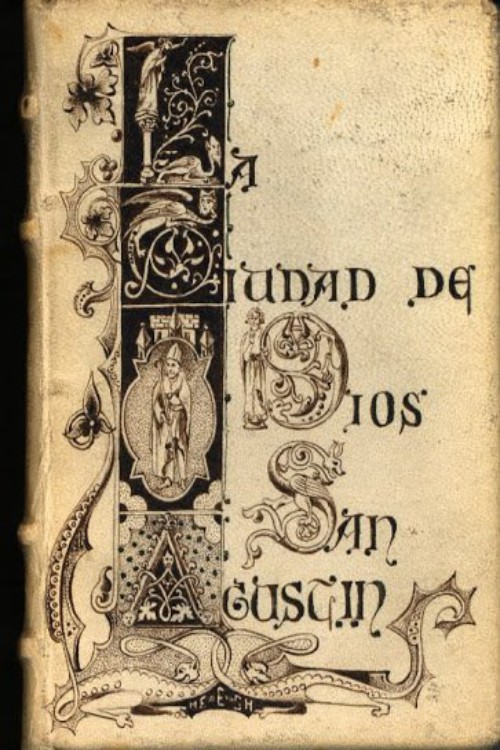 LA
CIUDAD DE
DIOS
SAN
AGUSTIN